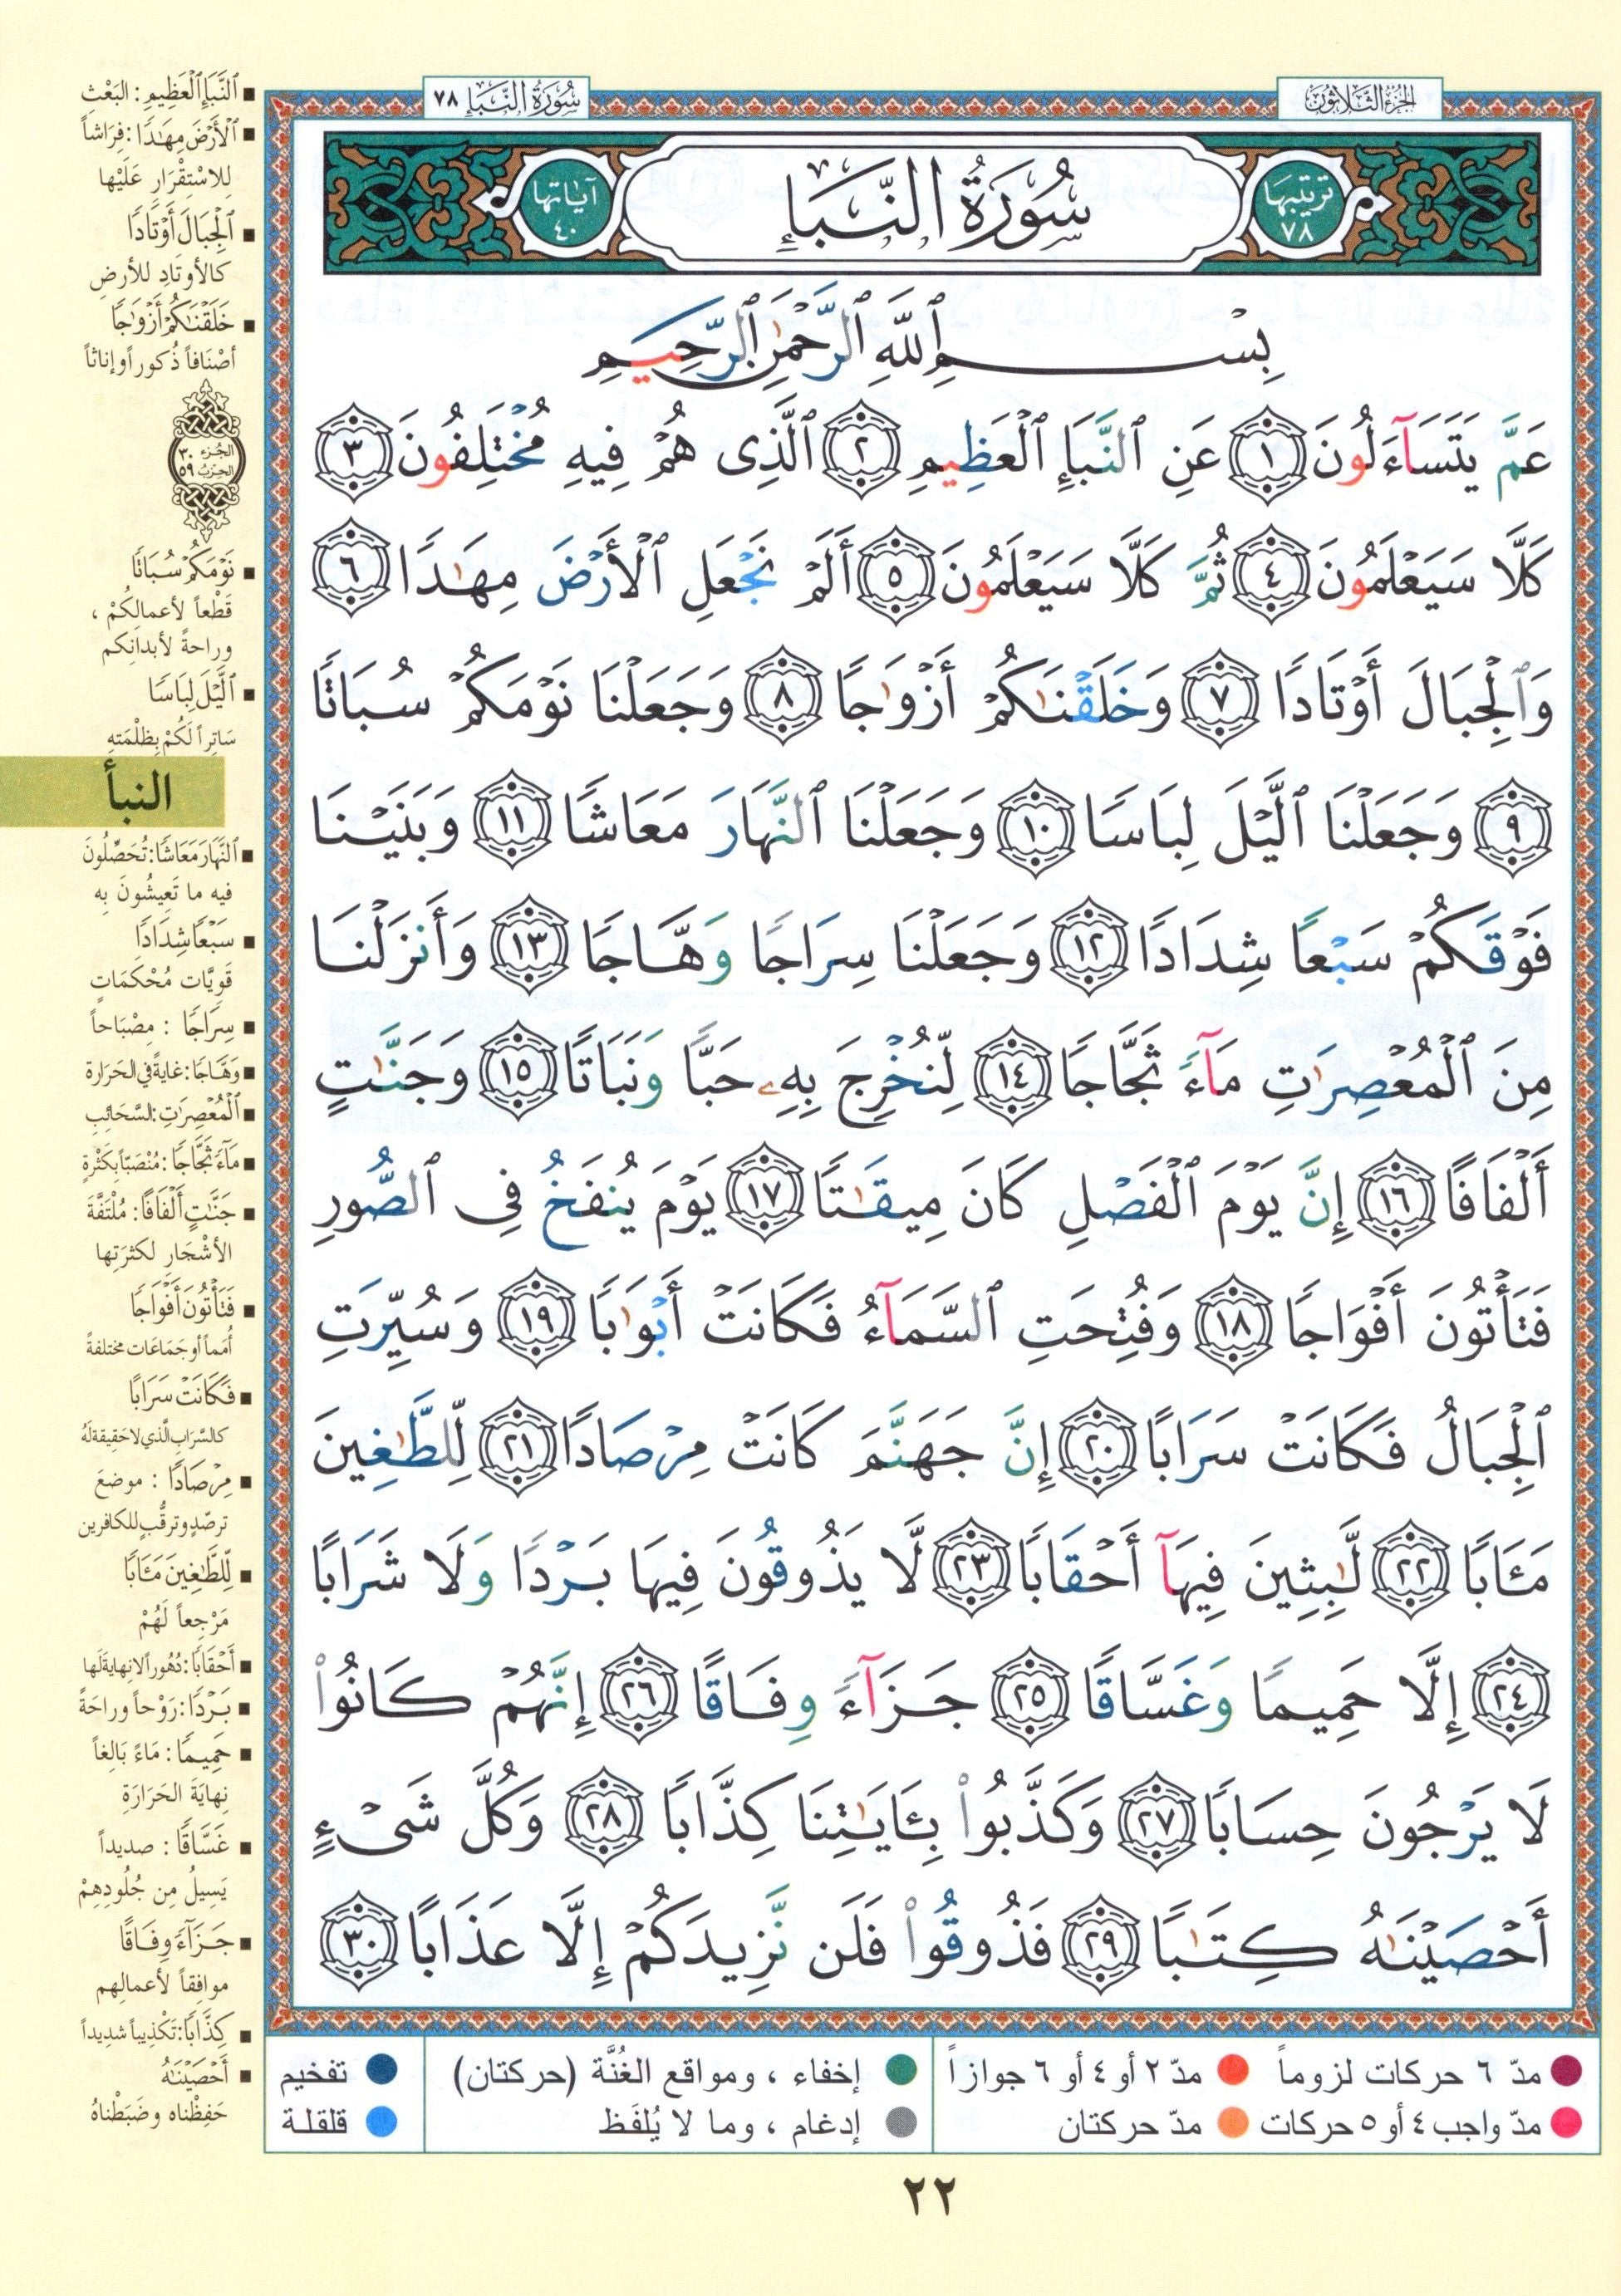 الجزء الثلاثون
سورة النبإ ٧٨
ترتيبها ٧٨
سُورَةُ النَّبَإِ
آياتها ٤٠
بِسْمِ ٱللَّهِ ٱلرَّحْمَٰنِ ٱلرَّحِيمِ
عَمَّ يَتَسَآءَلُونَ ١ عَنِ ٱلنَّبَإِ ٱلْعَظِيمِ ٢ ٱلَّذِى هُمْ فِيهِ مُخْتَلِفُونَ ٣
كَلَّا سَيَعْلَمُونَ ٤ ثُمَّ كَلَّا سَيَعْلَمُونَ ٥ أَلَمْ نَجْعَلِ ٱلْأَرْضَ مِهَٰدًا ٦
وَٱلْجِبَالَ أَوْتَادًا ٧ وَخَلَقْنَٰكُمْ أَزْوَٰجًا ٨ وَجَعَلْنَا نَوْمَكُمْ سُبَاتًا
٩ وَجَعَلْنَا ٱلَّيْلَ لِبَاسًا ١٠ وَجَعَلْنَا ٱلنَّهَارَ مَعَاشًا ١١ وَبَنَيْنَا
فَوْقَكُمْ سَبْعًا شِدَادًا ١٢ وَجَعَلْنَا سِرَاجًا وَهَّاجًا ١٣ وَأَنزَلْنَا
مِنَ ٱلْمُعْصِرَٰتِ مَآءً ثَجَّاجًا ١٤ لِّنُخْرِجَ بِهِۦ حَبًّا وَنَبَاتًا ١٥ وَجَنَّٰتٍ
أَلْفَافًا ١٦ إِنَّ يَوْمَ ٱلْفَصْلِ كَانَ مِيقَٰتًا ١٧ يَوْمَ يُنفَخُ فِى ٱلصُّورِ
فَتَأْتُونَ أَفْوَاجًا ١٨ وَفُتِحَتِ ٱلسَّمَآءُ فَكَانَتْ أَبْوَٰبًا ١٩ وَسُيِّرَتِ
ٱلْجِبَالُ فَكَانَتْ سَرَابًا ٢٠ إِنَّ جَهَنَّمَ كَانَتْ مِرْصَادًا ٢١ لِّلطَّٰغِينَ
مَـَٔابًا ٢٢ لَّٰبِثِينَ فِيهَآ أَحْقَابًا ٢٣ لَّا يَذُوقُونَ فِيهَا بَرْدًا وَلَا شَرَابًا
٢٤ إِلَّا حَمِيمًا وَغَسَّاقًا ٢٥ جَزَآءً وِفَاقًا ٢٦ إِنَّهُمْ كَانُوا۟
لَا يَرْجُونَ حِسَابًا ٢٧ وَكَذَّبُوا۟ بِـَٔايَٰتِنَا كِذَّابًا ٢٨ وَكُلَّ شَىْءٍ
أَحْصَيْنَٰهُ كِتَٰبًا ٢٩ فَذُوقُوا۟ فَلَن نَّزِيدَكُمْ إِلَّا عَذَابًا ٣٠
ٱلنَّبَإِ ٱلْعَظِيمِ: البَعْثِ
ٱلْأَرْضَ مِهَٰدًا: فِرَاشاً
لِلاسْتِقْرَارِ عَلَيْها
ٱلْجِبَالَ أَوْتَادًا
كالأوتَادِ للأرضِ
خَلَقْنَٰكُمْ أَزْوَٰجًا
أصْنَافاً ذُكور أو إناثاً
الجُزء ٣٠
الحِزب ٥٩
نَوْمَكُمْ سُبَاتًا
قَطْعاً لأعمالِكُمْ ،
وراحةً لأبدانِكم
ٱلَّيْلَ لِبَاسًا
سَاتِراً لَكُمْ بِظلْمَتهِ
النبأ
ٱلنَّهَارَ مَعَاشًا: تُحَصِّلُونَ
فيه ما تَعِيشُونَ بِه
سَبْعًا شِدَادًا
قَوِيَّات مُحْكَمَاتٍ
سِرَاجًا : مِصْبَاحاً
وَهَّاجًا: غايةً في الحَرَارة
ٱلْمُعْصِرَٰتِ: السَّحَائِبِ
مَآءً ثَجَّاجًا: مُنْصَبّاً بِكَثْرةٍ
جَنَّٰتٍ أَلْفَافًا: مُلْتَفَّةَ
الأشْجَارِ لكثرَتِها
فَتَأْتُونَ أَفْوَاجًا
أُمَماً أو جَمَاعَات مختلفةً
فَكَانَتْ سَرَابًا
كالسَّرَابِ الّذي لا حَقِيقة لهُ
مِرْصَادًا : موضعَ
ترصّدٍ وترقُّبٍ للكافرين
لِّلطَّٰغِينَ مَـَٔابًا
مَرْجِعاً لَهُمْ
أَحْقَابًا: دُهُوراً لا نِهاية لَها
بَرْدًا: رَوْحاً وراحَةً
حَمِيمًا: مَاءً بَالِغاً
نِهايَةَ الحَرَارَةِ
غَسَّاقًا : صديداً
يَسِيلُ مِن جُلُودِهِمْ
جَزَآءً وِفَاقًا
موافِقاً لأعمالِهم
كِذَّابًا: تَكْذِيباً شديداً
أَحْصَيْنَٰهُ
حَفِظْناه وضَبَطْناهُ
مدّ ٦ حركات لزوماً مدّ ٢ أو ٤ أو ٦ جوازاً إخفاء ، ومواقع الغُنَّة (حركتان) تفخيم
مدّ واجب ٤ أو ٥ حركات مدّ حركتان إدغام ، وما لا يُلفَظ قلقلة
٢٢